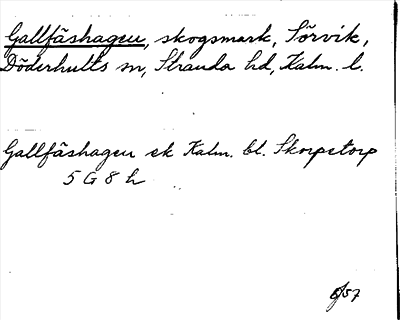 Gallfäshagen, skogsmark, Sörvik,
Döderhults sn, Stranda hd, Kalm. l.
Gallfäshagen ek Kalm. bl. Skorpetorp
5 G 8 h